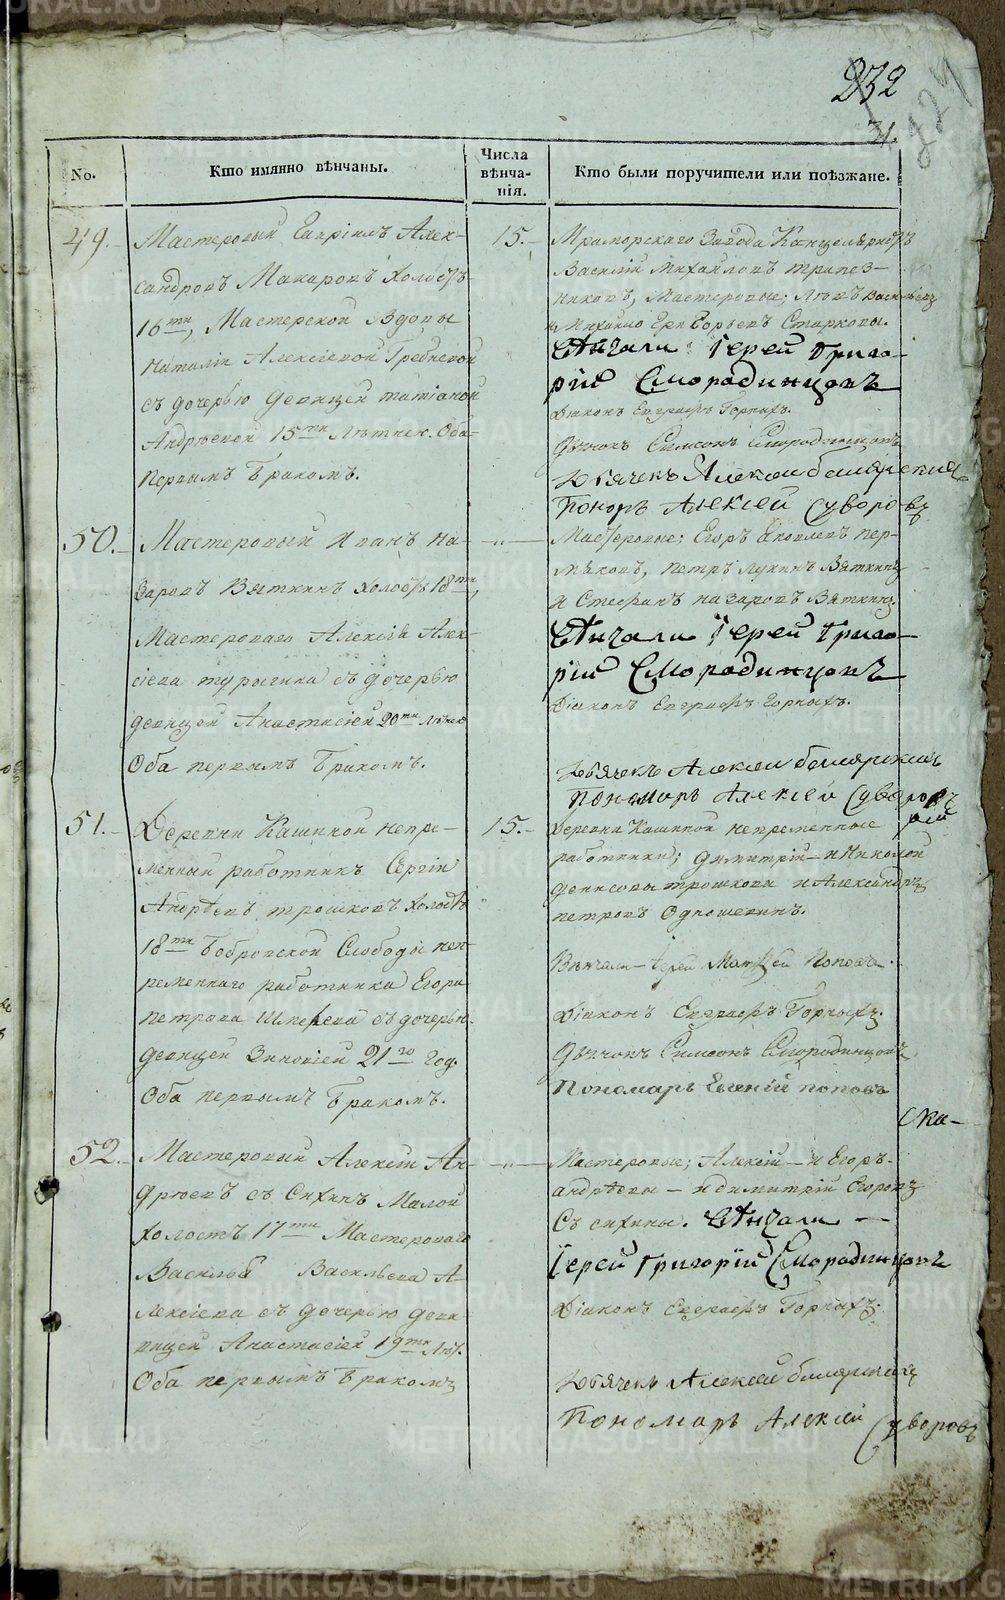 232
31.
224
No.
Кто имянно вѣнчаны.
Числа вѣнчанія.
Кто были поручители или поѣзжане.
49.
Мастеровый Гавріилъ Алек-
сандровъ Макаровъ холостъ
16ти, Мастерской Вдовы
Наталіи Алексѣевой Гребневой
съ дочерью девицей Татіаной
Андрѣевой 15ти Лѣтнек. Оба
первымъ бракомъ.
15.
Мраморскаго Завода Канцеляристъ
Василій Михайловъ Трапез-
никовъ, Мастеровые; Левъ Васильевъ
и Михайло Григорьевъ Старковы.
Вѣнчали Іерей Григо-
рій Смородинцовъ
Діаконъ Евграфъ Горныхъ.
Дьячокъ Симеонъ Смородинцовъ
Дьячекъ Алексей
Пономрь Алексѣй Суворовъ
50.
Мастеровый Иванъ На-
заровъ Вяткинъ холостъ 18ти,
Мастероваго Алексѣя Алек-
сѣева съ дочерью
девицей Анастасіей 20ти Лѣтнею
Оба первымъ бракомъ.
-"-
Мастеровые; Егоръ Яковлевъ Пер-
мяковъ, Петръ Лукинъ Вяткинъ
и Стефанъ Назаровъ Вяткинъ.
Вѣнчали Іерей Григо-
рій Смородинцовъ
Діаконъ Евграфъ Горныхъ.
Дьячекъ Алексей
Пономарь Алексѣй Суворовъ
51.
Деревни Кашиной непре-
менный работникъ Сергій
Андрѣевъ Трошковъ холостъ
18ти Бобровской Слободы неп-
ременнаго работника Егора
Петрова съ дочерью
девицей Зиновіей 21го год.
Оба первымъ бракомъ.
15.
Деревни Кашиной непременные
работники; Димитрій и Николай
Денисовы Трошковы и Александръ
Петровъ Одношевинъ.
рій
Вѣнчали Іерей Матфей Поповъ.
Діаконъ Евграфъ Горныхъ.
Дьячокъ Симеонъ Смородинцовъ
Пономарь Евгеній Поповъ
Ска-
52.
Мастеровый Алексѣй Ан-
дрѣевъ съ Сихинъ Малой
холостъ 17ти Мастероваго
Василья Васильева А-
лексѣева съ дочерью деви-
вицей Анастасіей 19ти Лѣт.
Оба первымъ бракомъ
-"-
Мастеровые; Алексій и Егоръ
Андрѣевы и Димитрій Егоровъ
Съ сихины. Вѣнчали
Іерей Григорій Смородинцовъ
Діаконъ Евграфъ Горныхъ.
Дьячекъ Алексей
Пономарь Алексѣй Суворовъ
METRIKI.GASO-URAL.RU